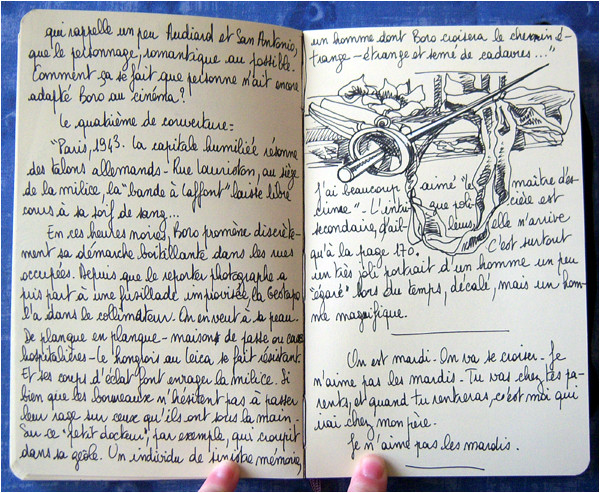 qui rappelle un peu Audiard et San Antonio,
que le personnage, romantique au possible.
Comment ça se fait que personne n'ait encore
adapté Boro au cinéma ?
Le quatrième de couverture =
"Paris, 1943. La capitale humiliée résonne
des talons allemands - Rue Lauriston, au siège
de la milice, la "bande à Laffont" laisse libre
cours à sa soif de sang...
En ces heures noires, Boro promène discrète-
ment sa démarche boitillante dans les rues
occupées. Depuis que le reporter photographe a
pris part à une fusillade improvisée, la Gestapo
l'a dans le collimateur. On en veut à sa peau.
De planque en planque - maisons de passe ou caves
hospitalières - le hongrois au Leica se fait résistant.
Et ses coups d'éclat font enrager la milice. Si
bien que les bourreaux n'hésitent pas à passer
leur rage sur ceux qu'ils ont sous la main.
Sur ce "petit docteur", par exemple, qui croupit
dans sa geôle. Un individu de sinistre mémoire,
un homme dont Boro croisera le chemin é-
trange - étrange et semé de cadavres..."
J'ai beaucoup aimé "le maître d'es-
crime" - L'intri que poli cière est
secondaire, d'ail leurs elle n'arrive
qu'à la page 170. C'est surtout
un très joli portrait d'un homme un peu
"égaré" hors du temps, décalé, mais un hom-
me magnifique.
On est mardi - On va se croiser - Je
n'aime pas les mardis - Tu vas chez tes pa-
rents, et quand tu rentreras, c'est moi qui
irai chez mon père.
Je n'aime pas les mardis.